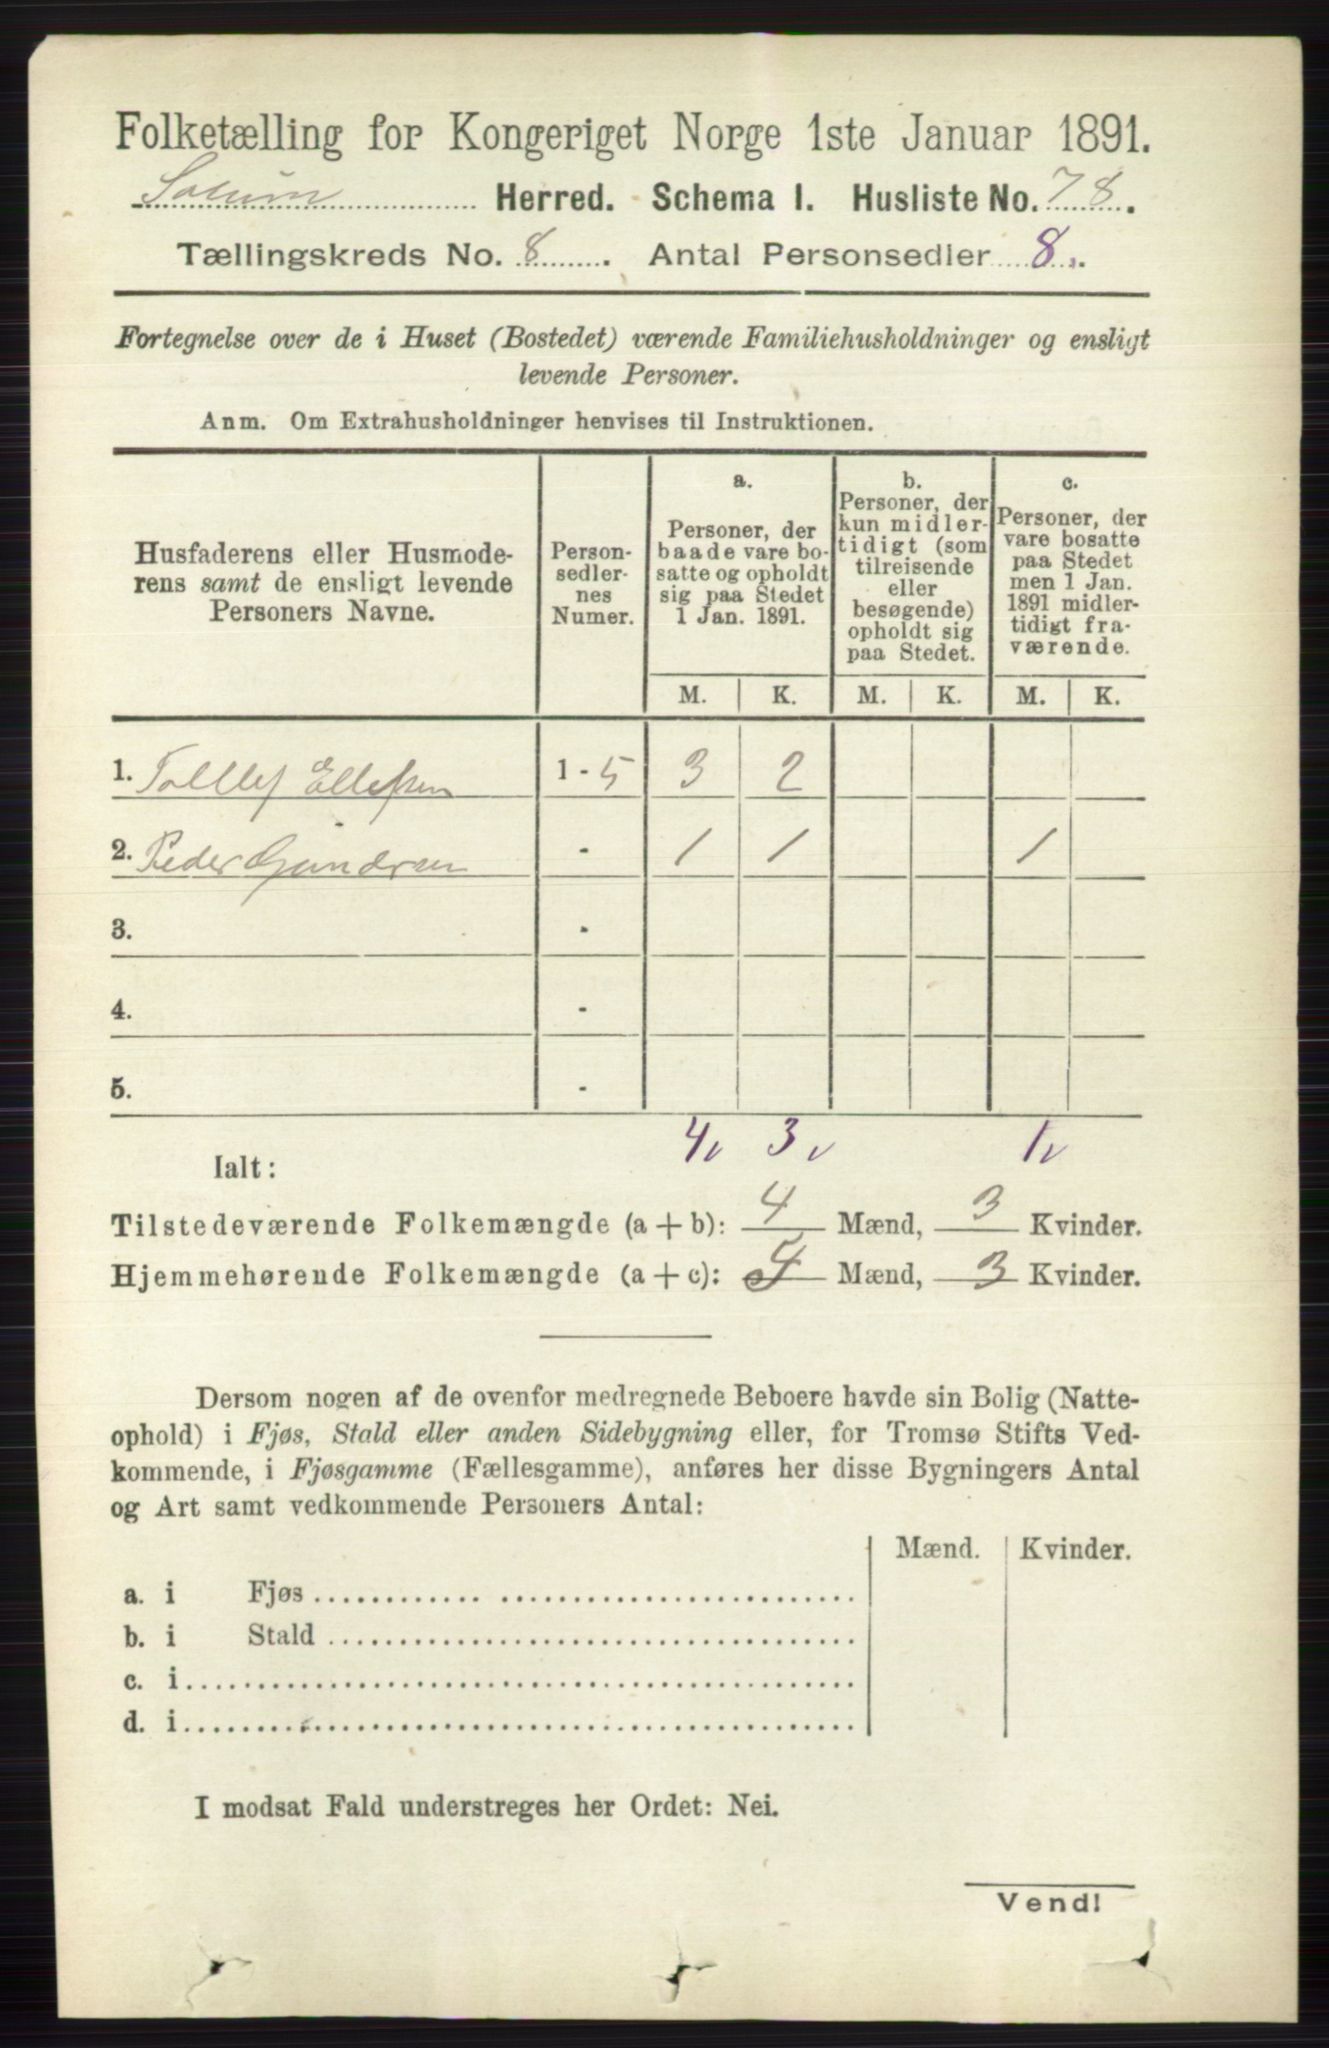 Folketælling for Kongeriget Norge 1ste Januar 1891.
Solum Herred. Schema I. Husliste No. 78.
Tællingskreds No. 8. Antal Personsedler 8.
Fortegnelse over de i Huset (Bostedet) værende Familiehusholdninger og ensligt
levende Personer.
Anm. Om Extrahusholdninger henvises til Instruktionen.
Husfaderens eller Husmode-
rens samt de ensligt levende
Personers Navne.
Person-
sedler-
nes
Numer.
a.
Personer, der
baade vare bo-
satte og opholdt
sig paa Stedet
1 Jan. 1891.
b.
Personer, der
kun midler-
tidigt (som
tilreisende
eller
besøgende)
opholdt sig
paa Stedet.
c.
Personer, der
vare bosatte
paa Stedet
men 1 Jan.
1891 midler-
tidigt fra-
værende.
M. K. M. K. M. K.
1. Tollef Ellefsen 1 - 5 3 2
2. Peder Gundersen - 1 1 1
3. -
4. -
5. -
4 3 1
Ialt:
Tilstedeværende Folkemængde (a + b): 4 Mænd, 3 Kvinder.
Hjemmehørende Folkemængde (a + c): 5 Mænd, 3 Kvinder.
Dersom nogen af de ovenfor medregnede Beboere havde sin Bolig (Natte-
ophold) i Fjøs, Stald eller anden Sidebygning eller, for Tromsø Stifts Ved-
kommende, i Fjøsgamme (Fællesgamme), anføres her disse Bygningers Antal
og Art samt vedkommende Personers Antal:
Mænd. Kvinder.
a. i Fjøs
b. i Stald
c. i
d. i
I modsat Fald understreges her Ordet: Nei.
Vend!